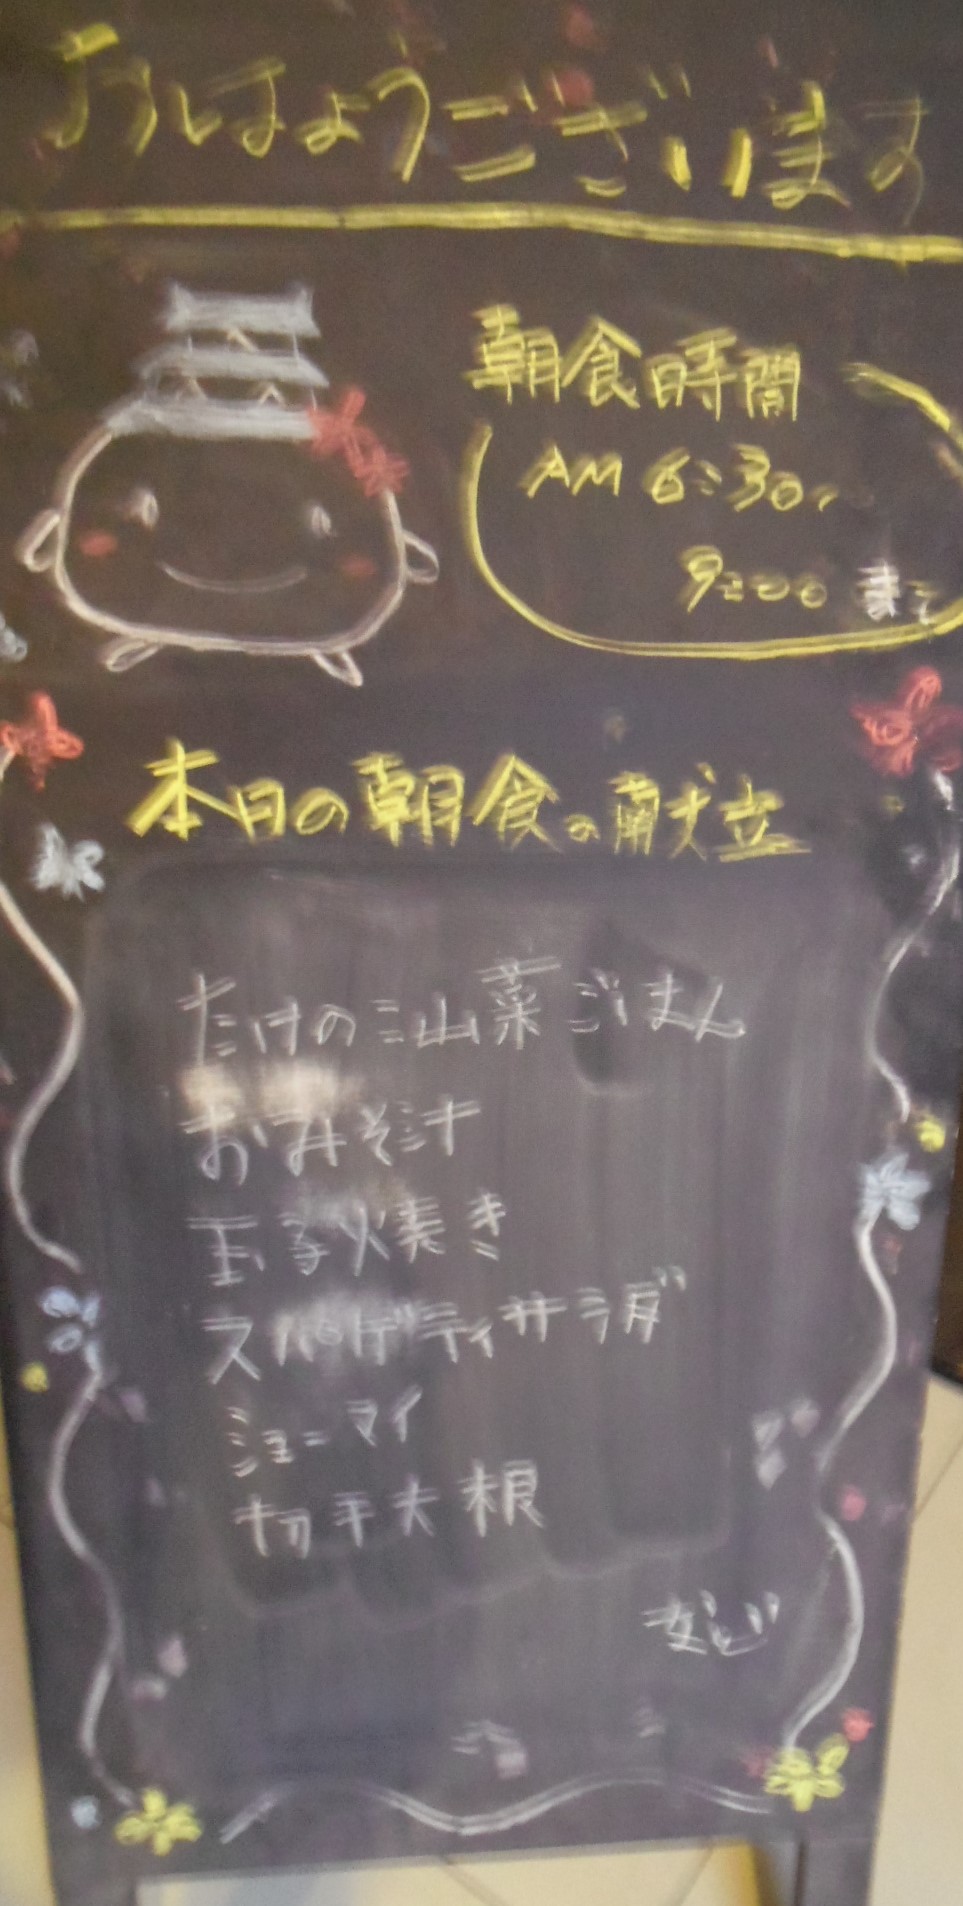 おはようございます
朝食時間
AM 6:30~
9:00 まで
本日の朝食の献立
たけのこ山菜ごはん
おみそ汁
玉子焼き
スパゲティサラダ
シューマイ
切干大根
など